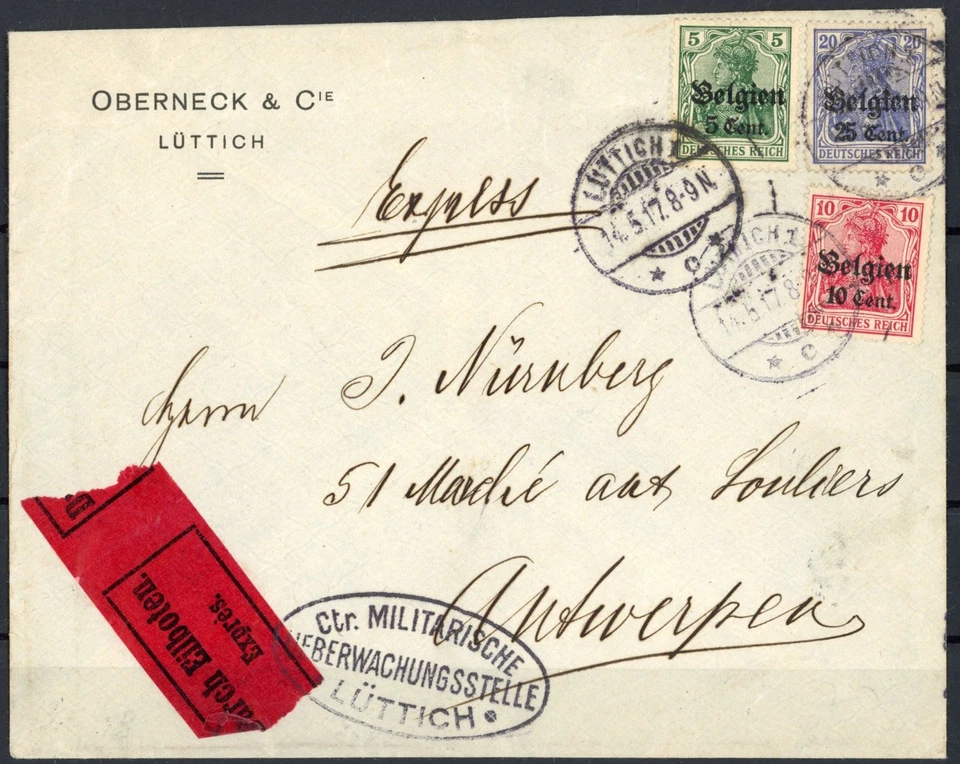 OBERNECK & CIE
LÜTTICH
5 5
Belgien
5 Cent.
DEUTSCHES REICH
20 20
Belgien
25 Cent.
DEUTSCHES REICH
10 10
Belgien
10 Cent.
DEUTSCHES REICH
LÜTTICH 1
14.5.17.8-9N.
* c *
LÜTTICH 1
14.5.17.8
* c
* c *
Express
Herrn J. Nürnberg
51 Marché aux Souliers
Antwerpen
Durch Eilboten.
Expres.
Ctr. MILITÄRISCHE
UEBERWACHUNGSSTELLE
LÜTTICH